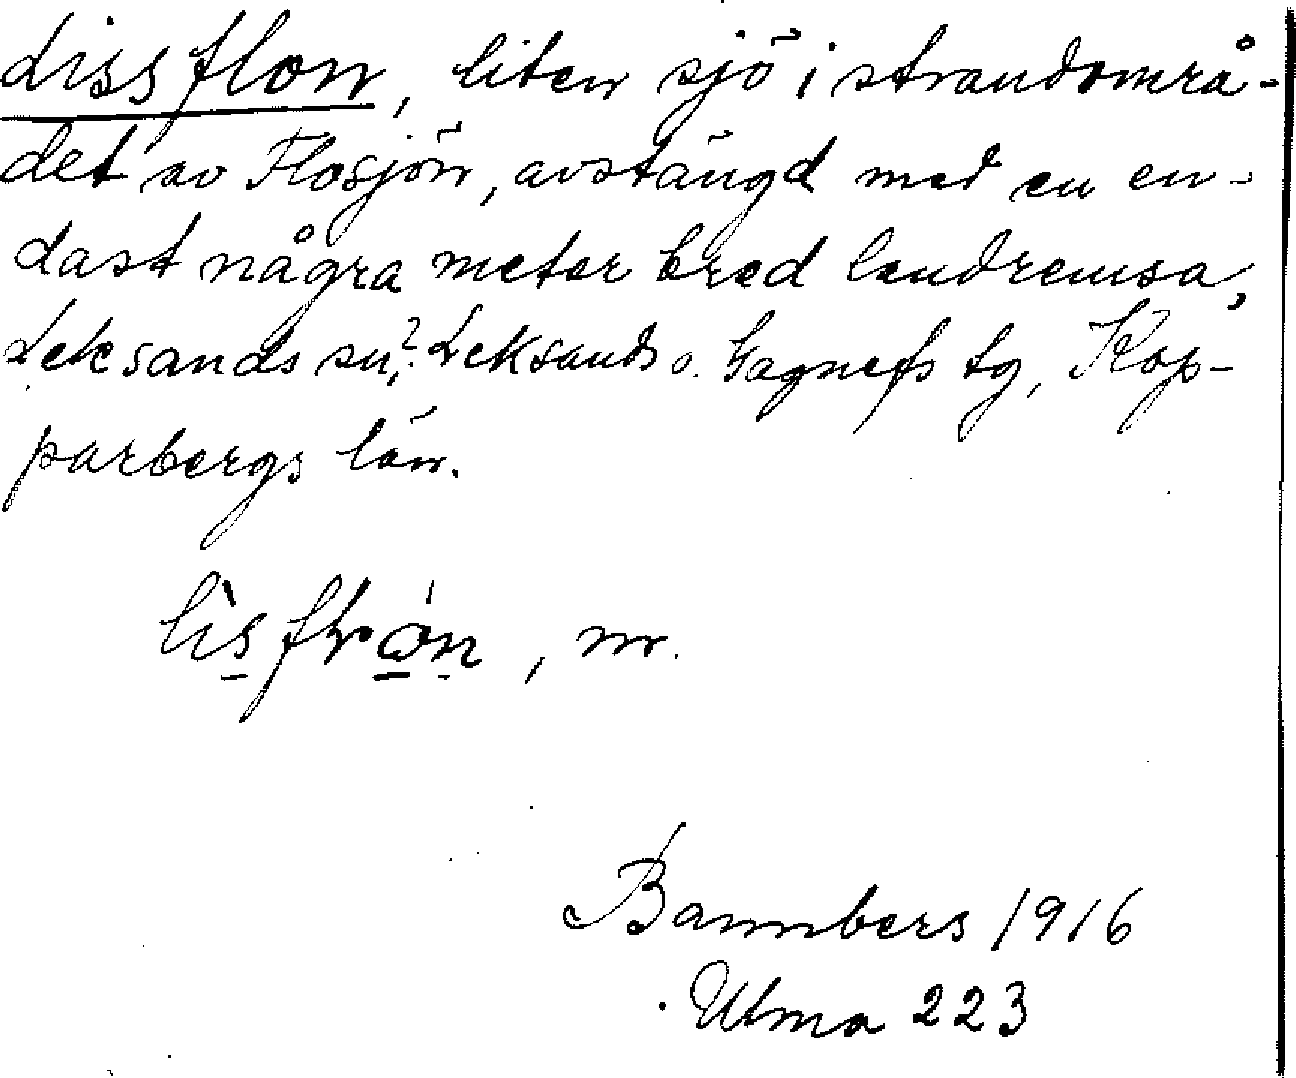 Lissflon, liten sjö i strandområ-
det av Flosjön, avstängd med en en-
dast några meter bred landremsa,
Leksands sn,? Leksands o. Gagnefs tg, Kop-
parbergs län.
, m.
Bannbers 1916
Ulma 223